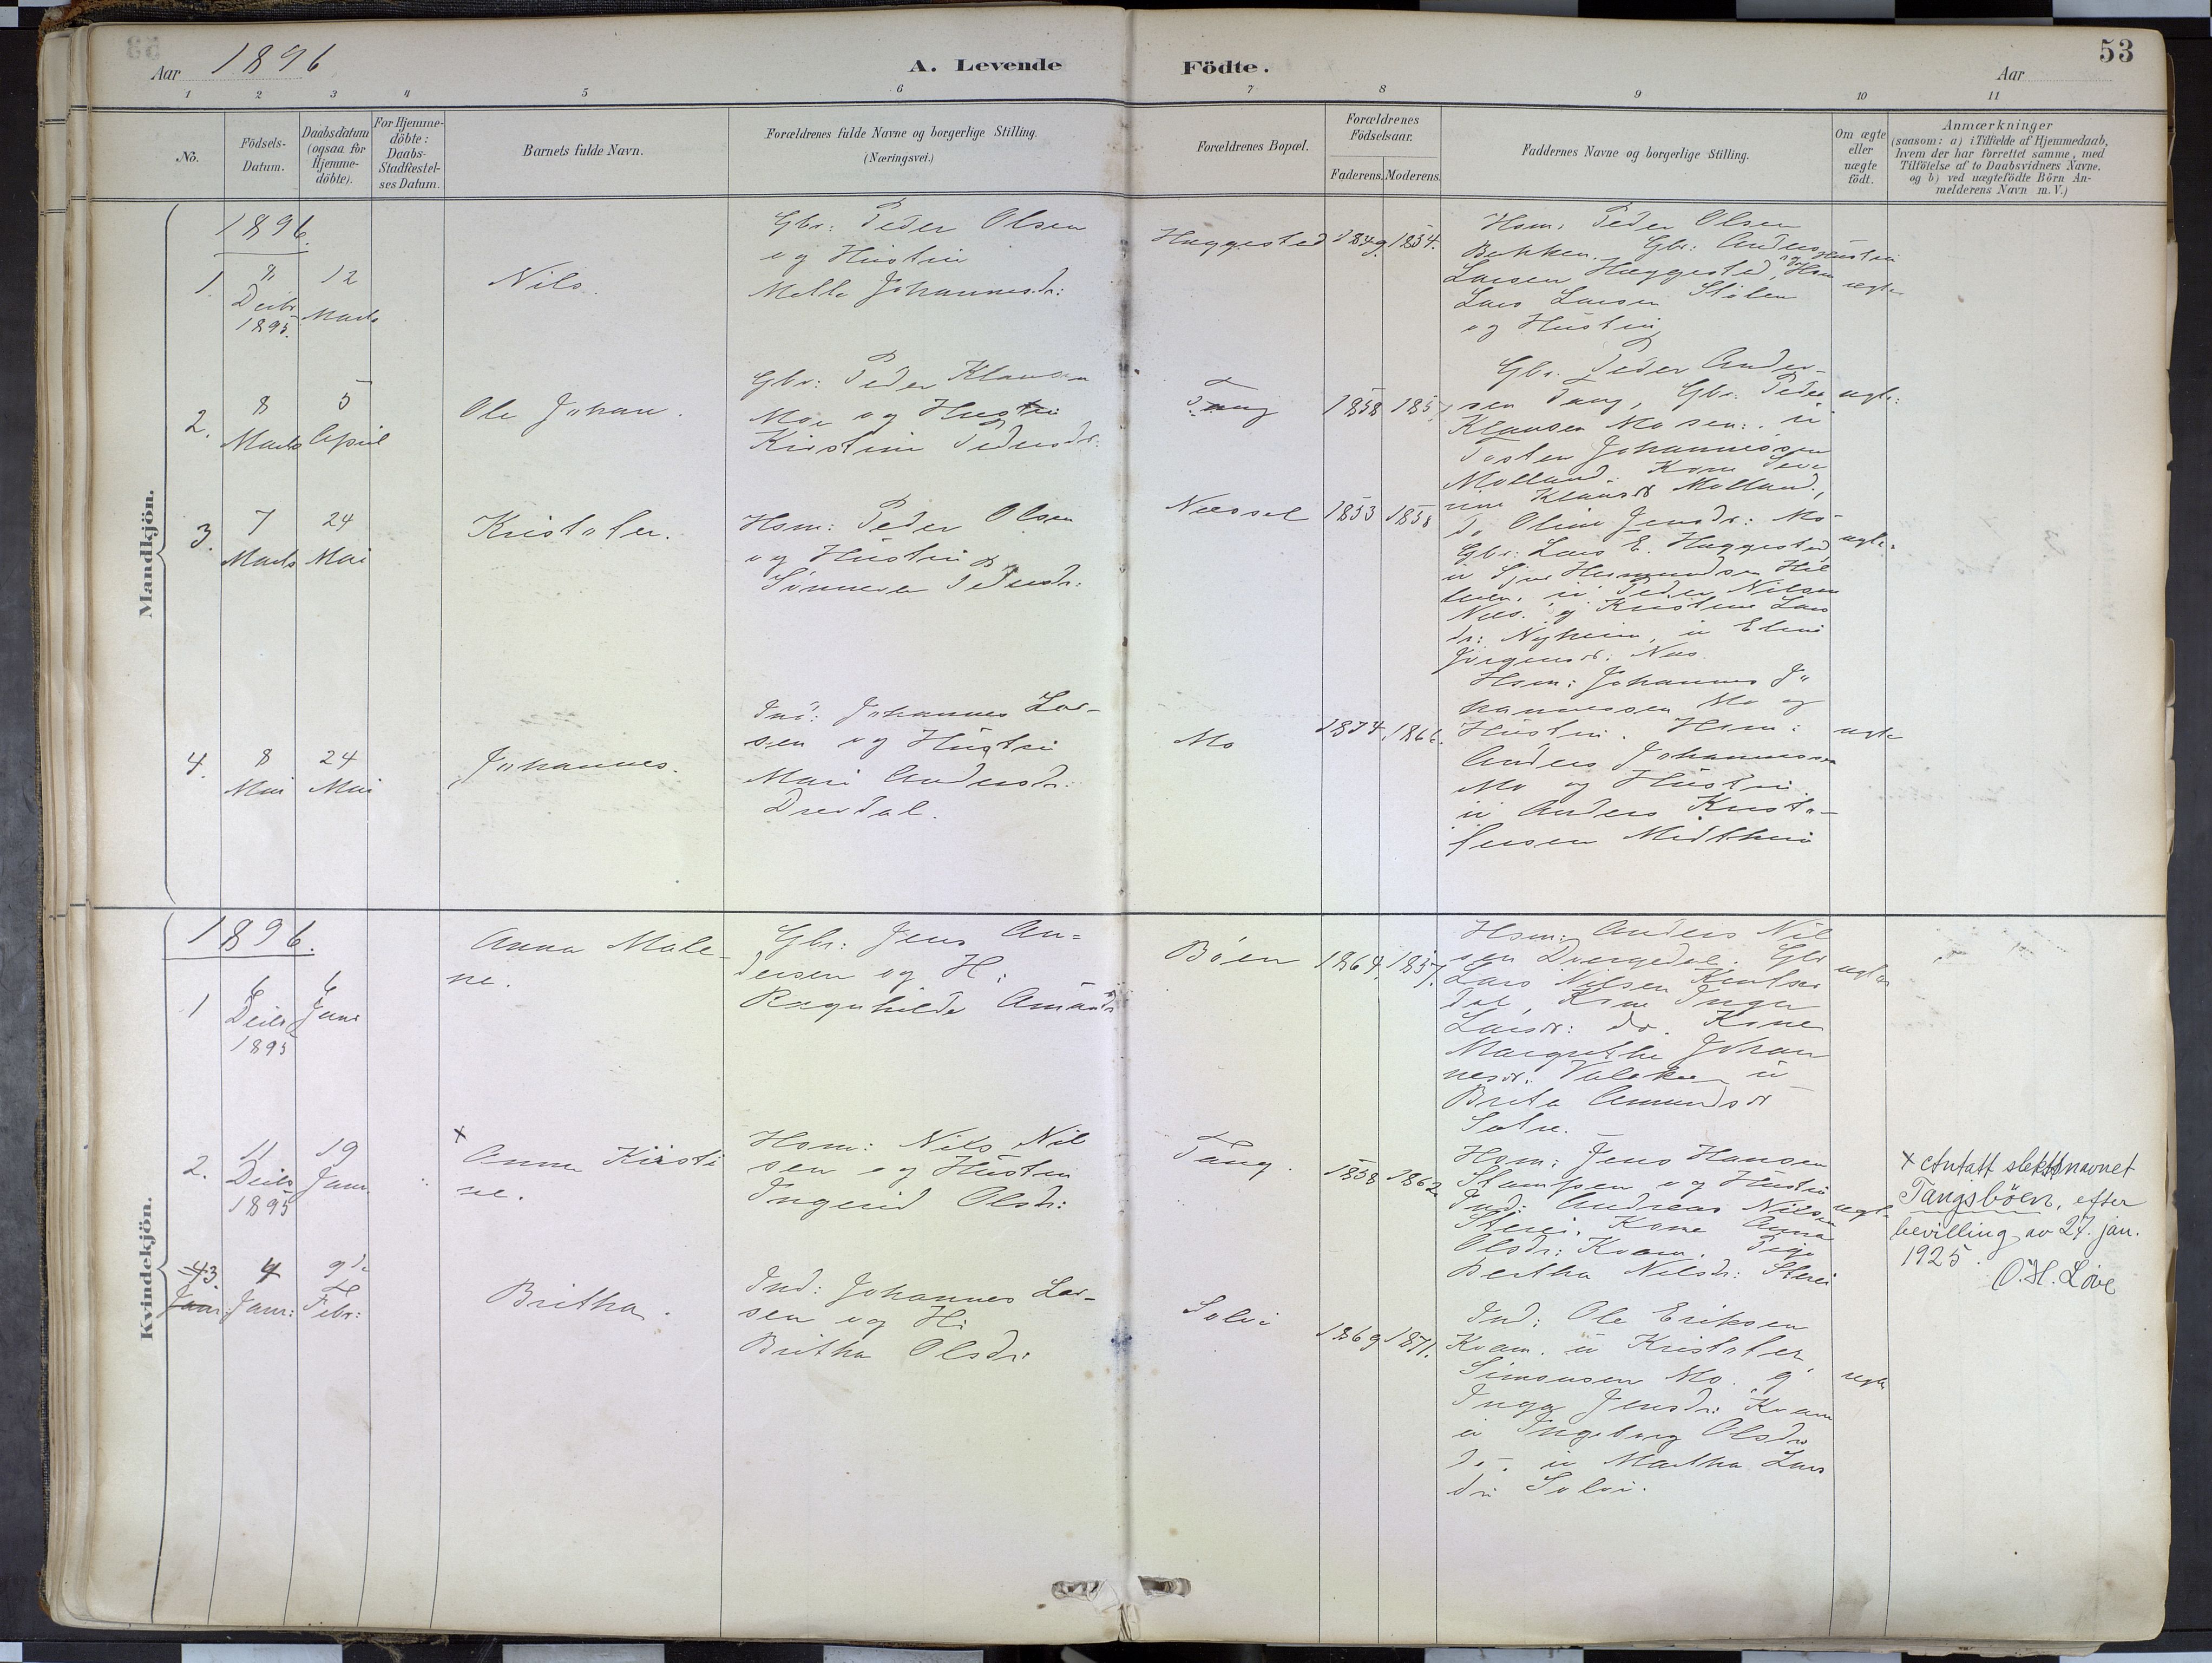 Aar 1896
A. Levende Födte.
Aar
53
1 2 3 4 5 6 7 8 9 10 11
No.
Födsels-
Datum.
Daabsdatum
(ogsaa for
Hjemme-
döbte).
For Hjemme-
döbte:
Daabs-
Stadfæstel-
ses Datum.
Barnets fulde Navn.
Forældrenes fulde Navne og borgerlige Stilling.
(Næringsvei.)
Forældrenes Bopæl.
Forældrenes
Födselsaar.
Faderens. Moderens.
Faddernes Navne og borgerlige Stilling.
Om ægte
eller
uægte
födt.
Anmærkninger
(saasom: a) i Tilfælde af Hjemmedaab,
hvem der har forrettet samme, med
Tilföielse af to Daabsvidners Navne.
og b) ved uægtefödte Börn An-
melderens Navn m. V.)
Mandkjön.
1896.
1
Decbr
1895.
12
Marts
Nils.
Gbr: Peder Olsen
og Hustru
Johannesdr:
Haggested
1849. 1854.
Hsm. Peder Olsen
Bakken. Gbr: Anders
Larsen Haggested, Hsm
Lars Larsen Stölen
og Hustru
ægte
2.
8
Marts
5
April
Ole Johan.
Gbr: Peder Klausen
Mo og Hustru
Kirstine Pedersdr:
Tang
1858
Gbr. Peder Ander-
sen Tang, Gbr. Peder
Klausen Mo
Tosten Johannessen
Molland. Kone
Klausdr Molland,
do Oline Jensdr: Mo
ægte:
3.
7
Marts
24
Mai
Kristofer.
Hsm: Peder Olsen
og Hustru
Sünneva Pedersdr:
Næssel
1853 1858
Gbr: Lars E. Haggested
Peder Nilsen
Næs. Kirstine Lars
dr: Nyheim, u Eline
Jörgensdr. Næs.
ægte.
4.
8
Mai
24
Mai
Johannes.
Ind: Johannes Lar-
sen og Hustru
Mari Andersdr:
Drevdal.
Mo
1874. 1866.
Hsm: Johannes Jo
hannessen Mo og
Hustru. Hsm:
Anders Johannessen
Mo og Hustru.
u Anders Kristo-
fersen
ægte
Kvindekjön.
1896.
1
6
Decbr
1895
6
Janr
Anna Male-
ne.
Gbr: Jens An=
dersen og H:
Ragnhilda
Böen
1864. 1857.
Hsm: Anders Nil
sen Dvergedal. Gbr
Lars Nilsen
dal, Kone Inger
Larsdr: do. Kone
Margrethe Johan
nesdr. u
Brita Amundsdr
Sætre.
ægte
2.
11
Decbr
1895
19
Janr.
x
Anna Kirsti
ne.
Hsm: Nils Nil
sen og Hustru
Ingerid Olsdr:
Tang.
1858 1862
Hsm: Jens Hansen
Stampen og Hustru
Ind: Andreas Nilsen
Steien. Kone Anna
Olsdr: Kvam. Pige
Bertha Nilsdr: Steien
ægte
x Antatt slektsnavnet
Tangsböen, efter
bevilling av 27. jan.
1925.
O. H. Löve
3.
Janr
4
Janr:
9de
Febr:
Britha.
Ind: Johannes Lar-
sen og H:
Britha Olsdr:
Solvi
1869 1871.
Ind: Ole Eriksen
Kvam. u Kristofer
Simonsen Mo.
Inga Jensdr: Kvam
u Ingeborg Olsdr
do. u Martha Lars
dr: Solvi.
ægte